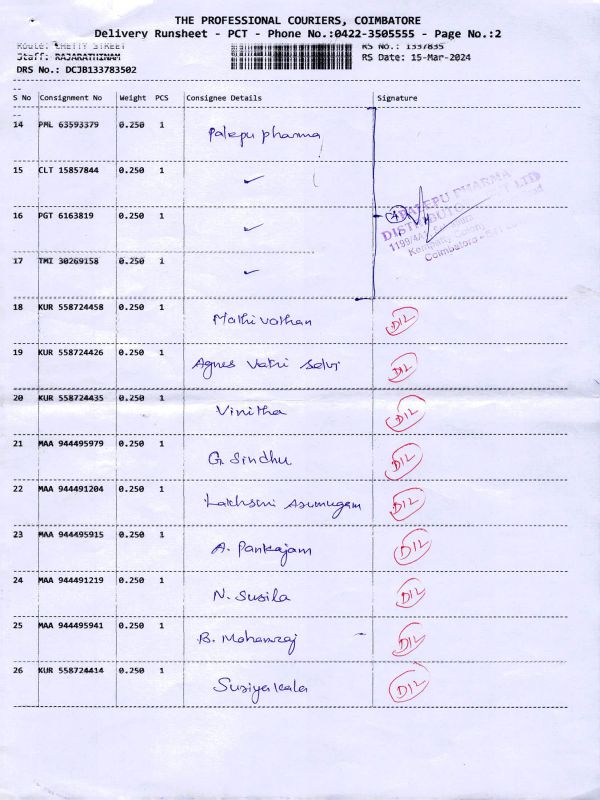 THE PROFESSIONAL COURIERS, COIMBATORE
Delivery Runsheet - PCT - Phone No.:0422-3505555 - Page No.:2
Route: CHETTY STREET RS No.: 1337835
Staff: RAJARATHINAM RS Date: 15-Mar-2024
DRS No.: DCJB133783502
S No Consignment No Weight PCS Consignee Details Signature
14 PML 63593379 0.250 1 Palepu pharma
15 CLT 15857844 0.250 1 ✓
16 PGT 6163819 0.250 1 ✓
PALEPU PHARMA
DISTRIBUTORS PVT LTD
Coimbatore
17 TMI 30269158 0.250 1 ✓
18 KUR 558724458 0.250 1 Mathivathan DIL
19 KUR 558724426 0.250 1 Agnes Vatri Selvi DIL
20 KUR 558724435 0.250 1 Vinitha DIL
21 MAA 944495979 0.250 1 G. Sindhu DIL
22 MAA 944491204 0.250 1 Lakhsmi Asumugam DIL
23 MAA 944495915 0.250 1 A. Pankajam DIL
24 MAA 944491219 0.250 1 N. Susila DIL
25 MAA 944495941 0.250 1 B. Mohanraj DIL
26 KUR 558724414 0.250 1 Susiyakala DIL